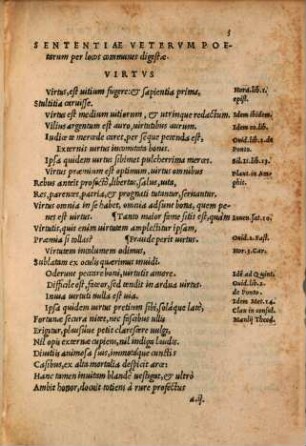 5
SENTENTIAE VETERVM POE-
tarum per locos communes digestæ.
VIRTVS
Virtus, est uitium fugere: & sapientia prima, Hora. lib. 1.
Stultitia caruisse. epist.
Virtus est medium uitiorum, & utrinque redactum. Idem ibidem.
Vilius argentum est auro, uirtutibus aurum. Idem
Indiæ mercede caret, per seque petenda est, Ouid. lib. 2. de
Externis uirtus incomitata bonis. Ponto.
Ipsa quidem uirtus sibimet pulcherrima merces. Sil. li. 13.
Virtus præmium est optimum, uirtus omnibus Plaut. in Am
Rebus anteit profecto, libertas, salus, uita, phit.
Res, parentes, patria, & prognati tutantur, seruantur.
Virtus omnia in se habet, omnia adsunt bona, quem pe-
nes est uirtus. ¶ Tanto maior famæ sitis est, quàm Iuuen. sat. 10.
Virtutis, quis enim uirtutem amplectitur ipsam,
Præmia si tollas? ¶ Fraude perit uirtus. Ouid. 2. Fast.
Virtutem incolumem odimus, Hor. 3. Car.
Sublatam ex oculis quærimus inuidi.
Oderunt peccare boni, uirtutis amore. Idē ad Quint.
Difficile est, fateor, sed tendit in ardua uirtus. Ouid. lib. 2.
de Ponto.
Inuia uirtuti nulla est uia. Idem Met. 14.
Ipsa quidem uirtus pretium sibi, solaque latè Clau. in consul.
Fortunæ secura nitet, nec fascibus ullis Manlij Theod.
Erigitur, plausúue petit clarescere uulgi,
Nil opis externæ cupiens, nil indiga laudis.
Diuitijs animosa suis, immotaque cunctis
Casibus, ex alta mortalia despicit arce:
Hanc tamen inuitam blandè uestigat, & ultrò
Ambit honor, docuit toties à rure profectus
a.ij.